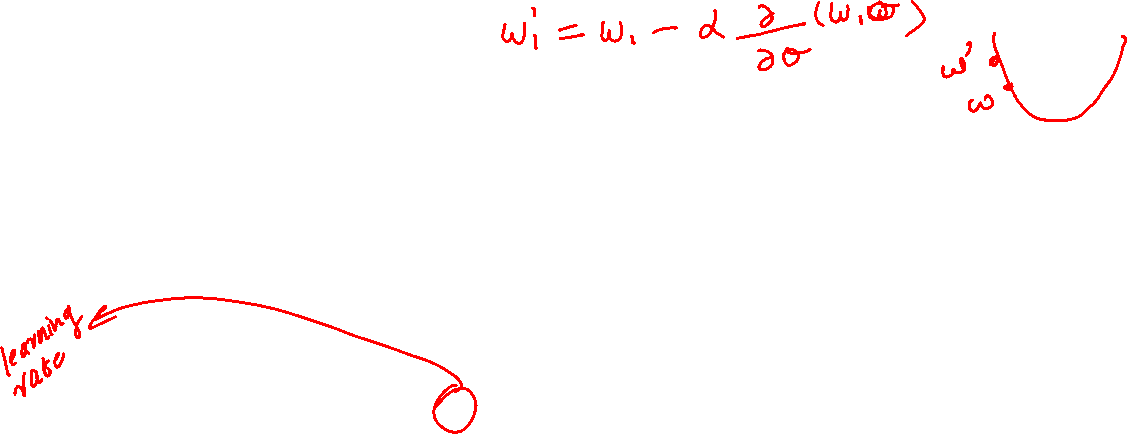 w₁' = w₁ - α ∂/∂σ (w₁
w'
w
learning
rate